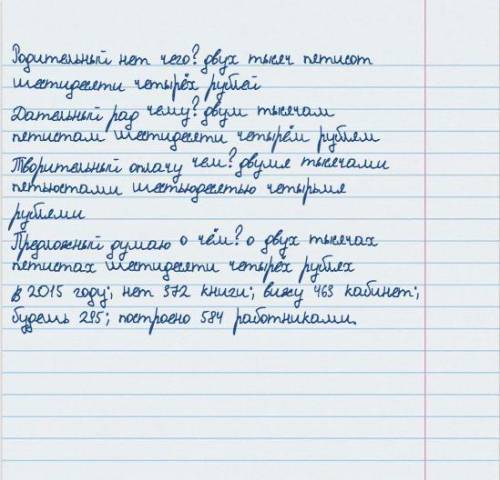 Родительный нет чего? двух тысяч петисот
шестидесети четырёх рублей
Дательный рад чему? двум тысячам
петистам шестидесети четырём рублем
Творительный оплачу чем? двумя тысячами
петьюстами шестьюдесетью четырьмя
рублеми
Предложный думаю о чём? о двух тысячах
петистах шестидесети четырёх рублех
в 2015 году; нет 372 книги; вижу 463 кабинет;
будешь 295; построено 584 работниками.